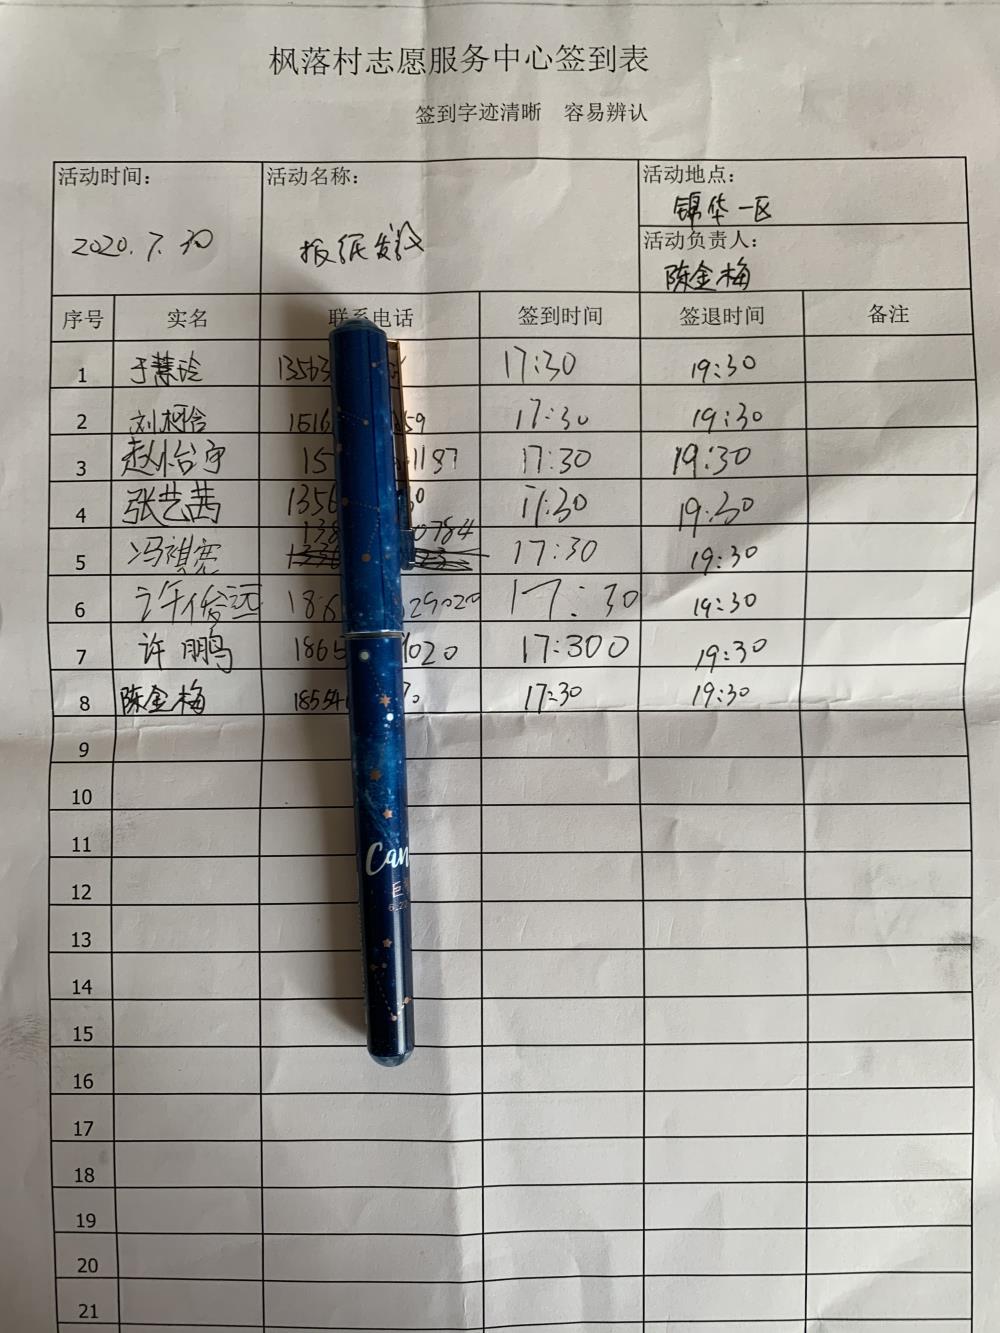 枫落村志愿服务中心签到表
签到字迹清晰 容易辨认
活动时间: 活动名称: 活动地点:
锦华一区
2020.7.30 报纸发放
活动负责人:
陈金梅
序号 实名 联系电话 签到时间 签退时间 备注
1 于慧玲 13563 17:30 19:30
2 刘柯含 1516 59 17:30 19:30
3 赵怡宁 15 1197 17:30 19:30
4 张艺茜 1356 30 17:30 19:30
5 冯祺宽 138 0784 17:30 19:30
6 许俊远 186 29020 17:30 19:30
7 许鹏 1865 1020 17:300 19:30
8 陈金梅 1854 70 17:30 19:30
9
10
11
12
13
14
15
16
17
18
19
20
21
Can
巨